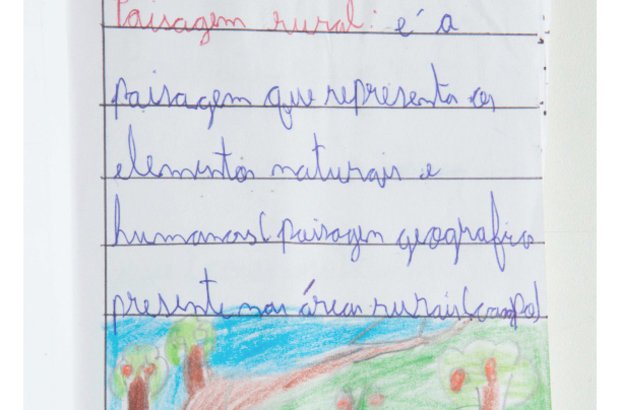 Paisagem rural: é a
paisagem que representa os
elementos naturais e
humanos (paisagem geografia
presente nas áreas rurais (campo)